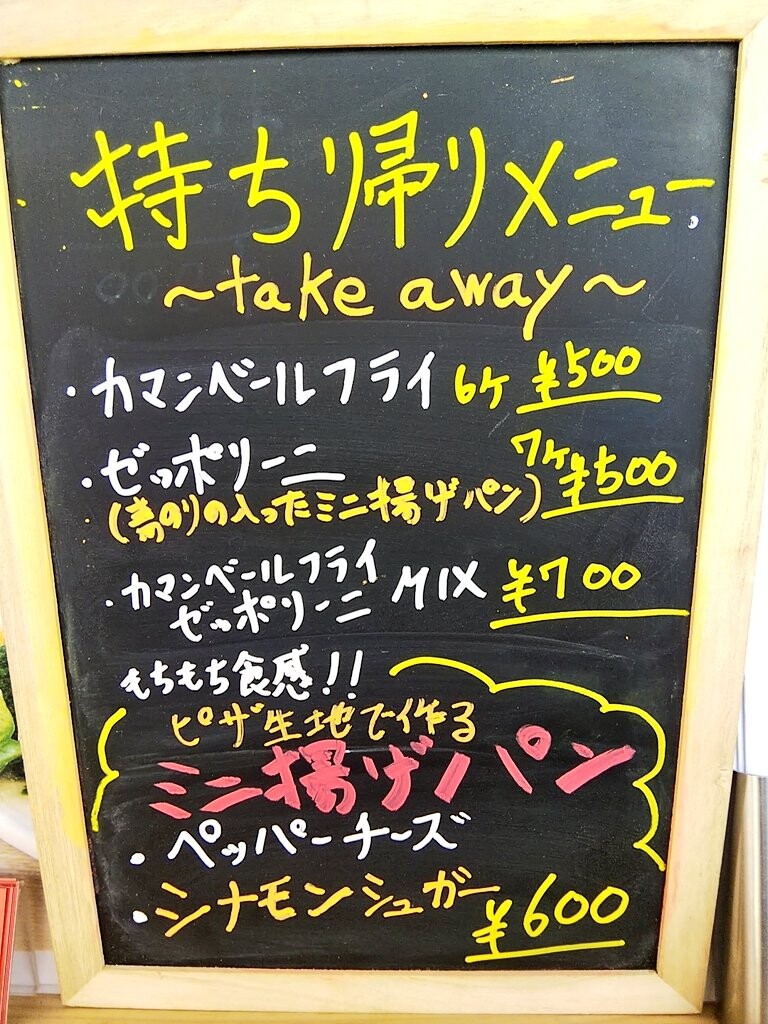 持ち帰りメニュー
~take away~
・カマンベールフライ 6ケ ¥500
・ゼッポリーニ 7ケ ¥500
(青のりの入ったミニ揚げパン)
・カマンベールフライ
ゼッポリーニ MIX ¥700
もちもち食感!!
ピザ生地で作る
ミニ揚げパン
・ペッパーチーズ
・シナモンシュガー ¥600